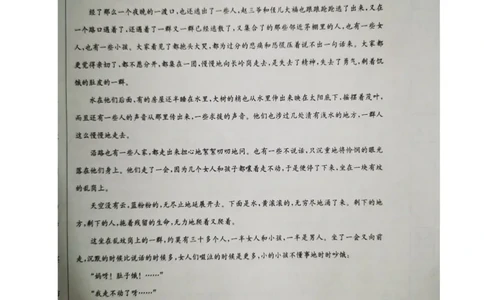 经了那么一个夜晚的一渡口,也还逃出了一些人,赵三爷和佳儿大福也跟跟跄跄逃了出来,又在
一个路口遇着了,还遇着了一群又一群已经逃散了,又集合了的那些邻近茅棚里的人,也有一些女
人,也有一些小孩。大家看见了都抱头大哭,都为过分的悲痛和恐慌压着说不出一句话来。大家都
更觉得亲切了,都不愿分开,都集在一团,慢慢地向长岭岗走去,是失去了精神,失去了勇气,剩着饥
饿的肚皮的一群。
水在他们后面,有的房屋还半睡在水里,大树的梢也从水里伸出来映在太阳底下,摇摆着茂叶,
而且还有一些人的声音从那里传出来,一些求援的声音。他们也涉过几处清有浅水的地方,一群人
这么慢慢地走去。
沿路也有一些人家,都走出来担心地絮絮叨叨地问。也有一些不说话,只沉重地将怜悯的眼光
落在他们身上。他们走了一会,因为几个女人和孩子都嚷着走不动,于是便停了下来,坐在一块有坟
的乱岗上。
天空没有云,蓝粉粉的,无尽止地延展开去。下面是水,黄滚滚的,无穷尽地涌了来。剩下的地
方,剩下的人,拖着残留的生命,无力地爬着又爬着。
这坐在乱坟岗上的一群,约莫有三十多个人,一半女人和小孩,一半是男人。坐了一会又向前
走,沉默的时候比说话的时候多,女人们啜泣的时候是更多,小的小孩不懂事地时时吵饿。
“妈呀!肚子饿!……”
“我走不动了呀……”